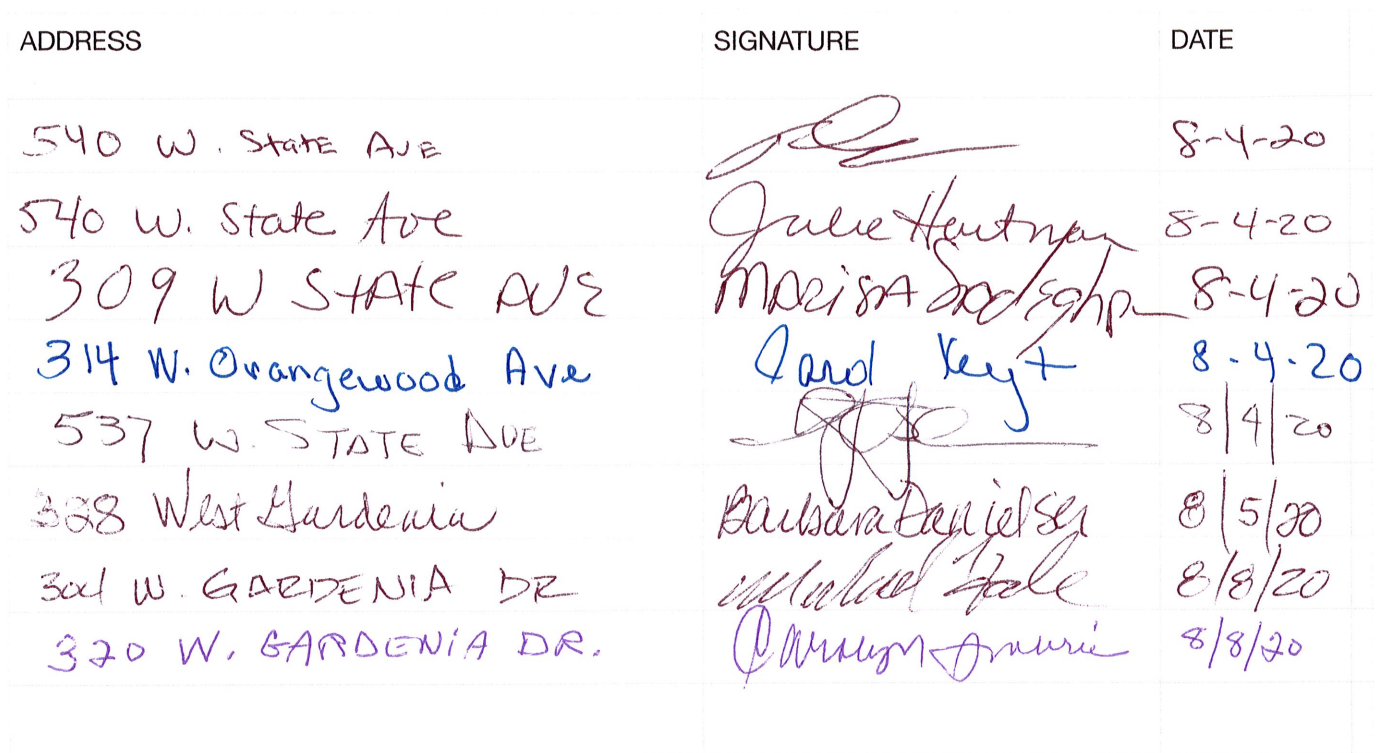 ADDRESS SIGNATURE DATE
540 W. State Ave 8-4-20
540 W. State Ave Julie Heutman 8-4-20
309 W State Ave Marisa 8-4-20
314 W. Orangewood Ave Carol Keyt 8-4-20
537 W. STATE AVE 8/4/20
328 West Gardenia Barbara Danielsen 8/5/20
304 W. GARDENIA DR Michael 8/8/20
320 W. GARDENIA DR. Carolyn 8/8/20